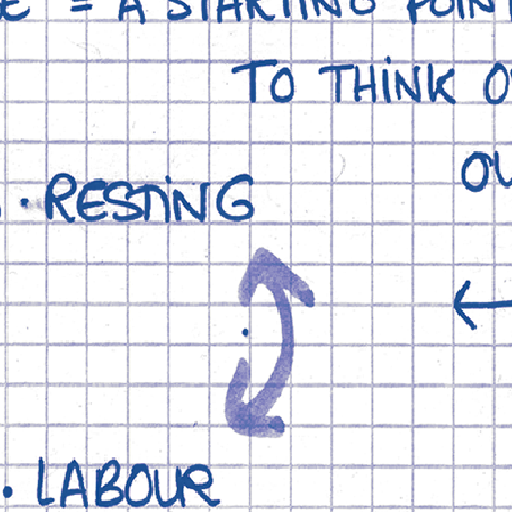 = A STARTING POINT
TO THINK
· RESTING
←
· LABOUR